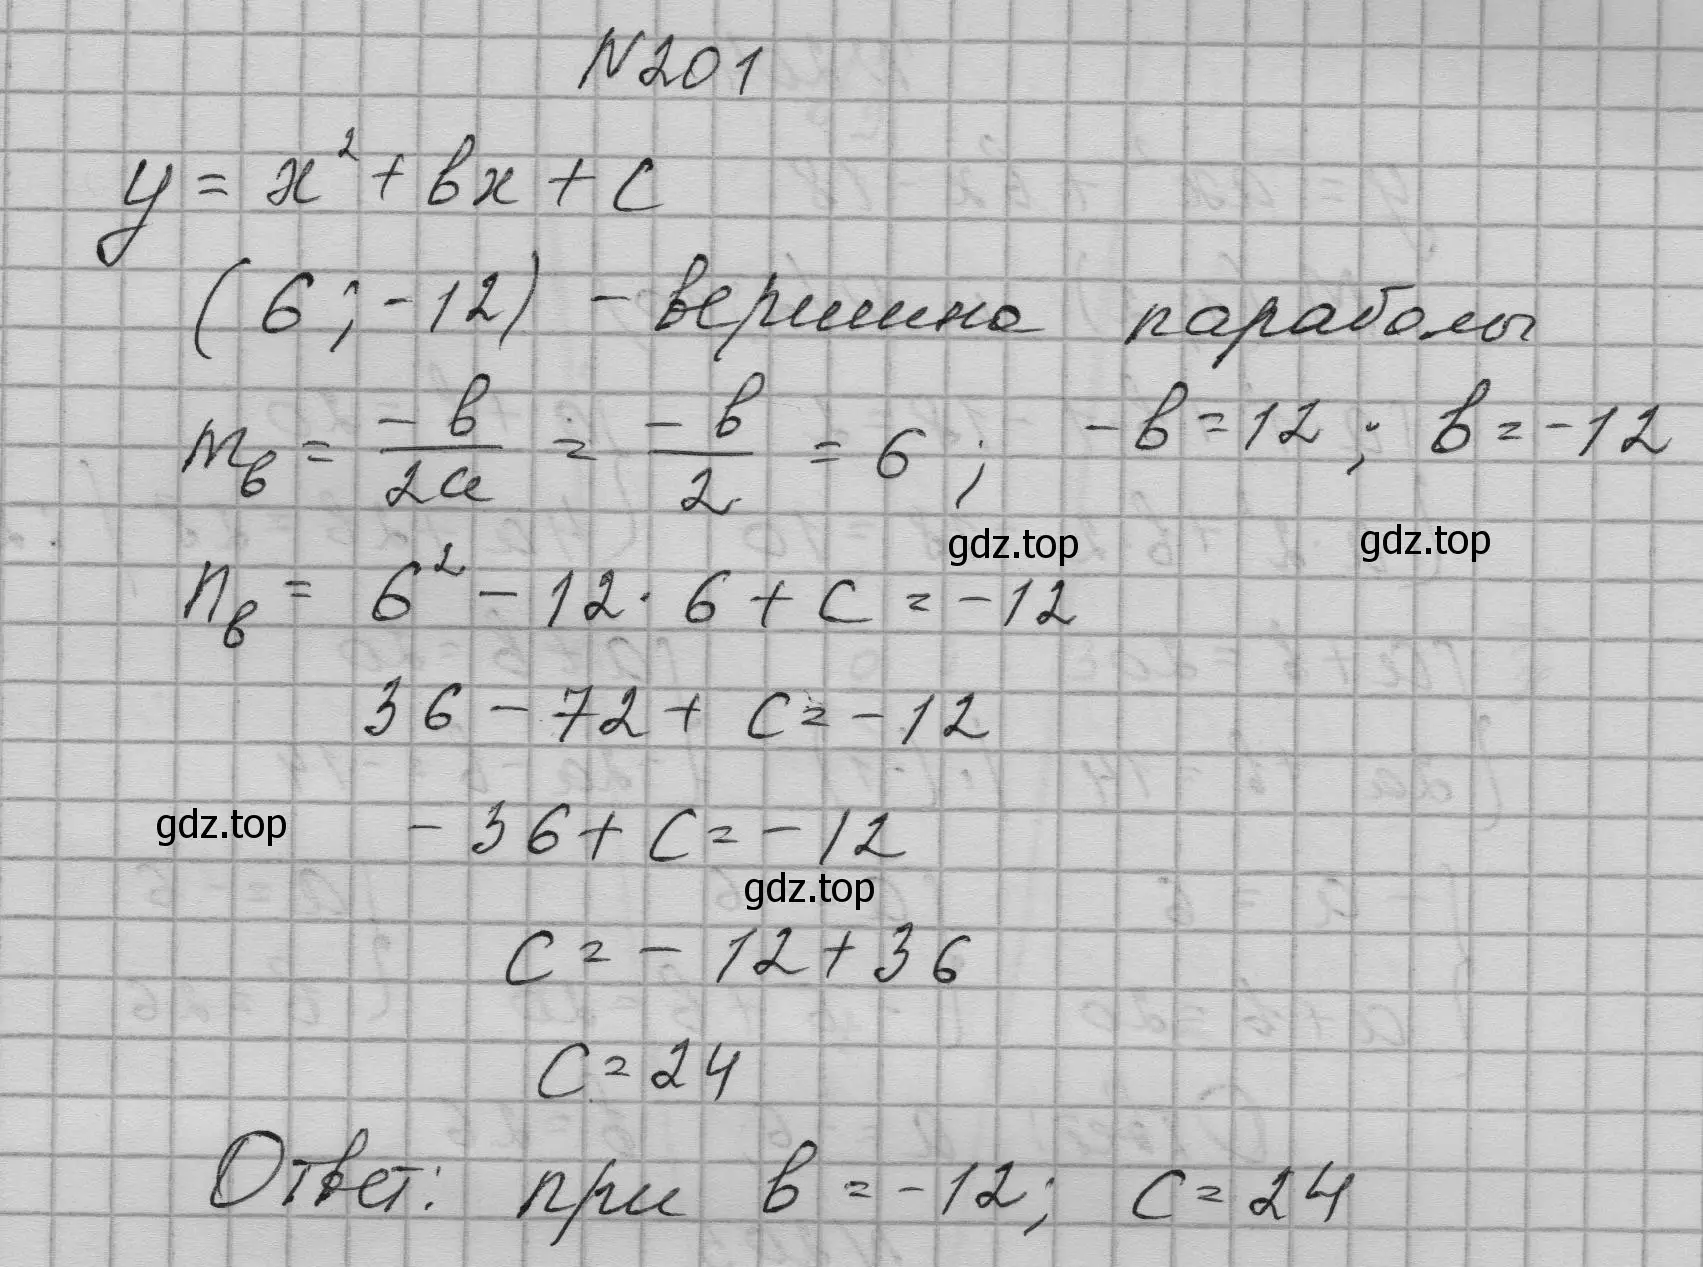 N201
y = x² + bx + c
(6; -12) - вершина параболы
m_в = -b/2a = -b/2 = 6; -b = 12; b = -12
gdz.top gdz.top
n_в = 6² - 12 · 6 + c = -12
36 - 72 + c = -12
gdz.top - 36 + c = -12
gdz.top
c = - 12 + 36
c = 24
Ответ: при b = -12; c = 24